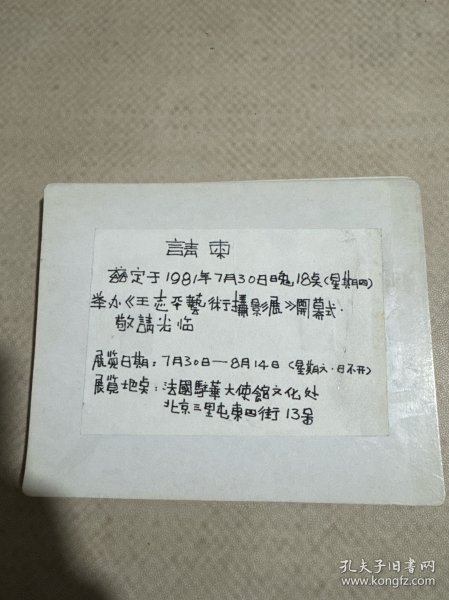 請柬
兹定于1981年7月30日晚18点(星期四)
举办《王志平藝術攝影展》開幕式.
敬請光临
展览日期：7月30日—8月14日(星期六·日不开)
展览地点：法國駐華大使館文化处
北京三里屯東四街13号
孔夫子旧书网
www.kongfz.com